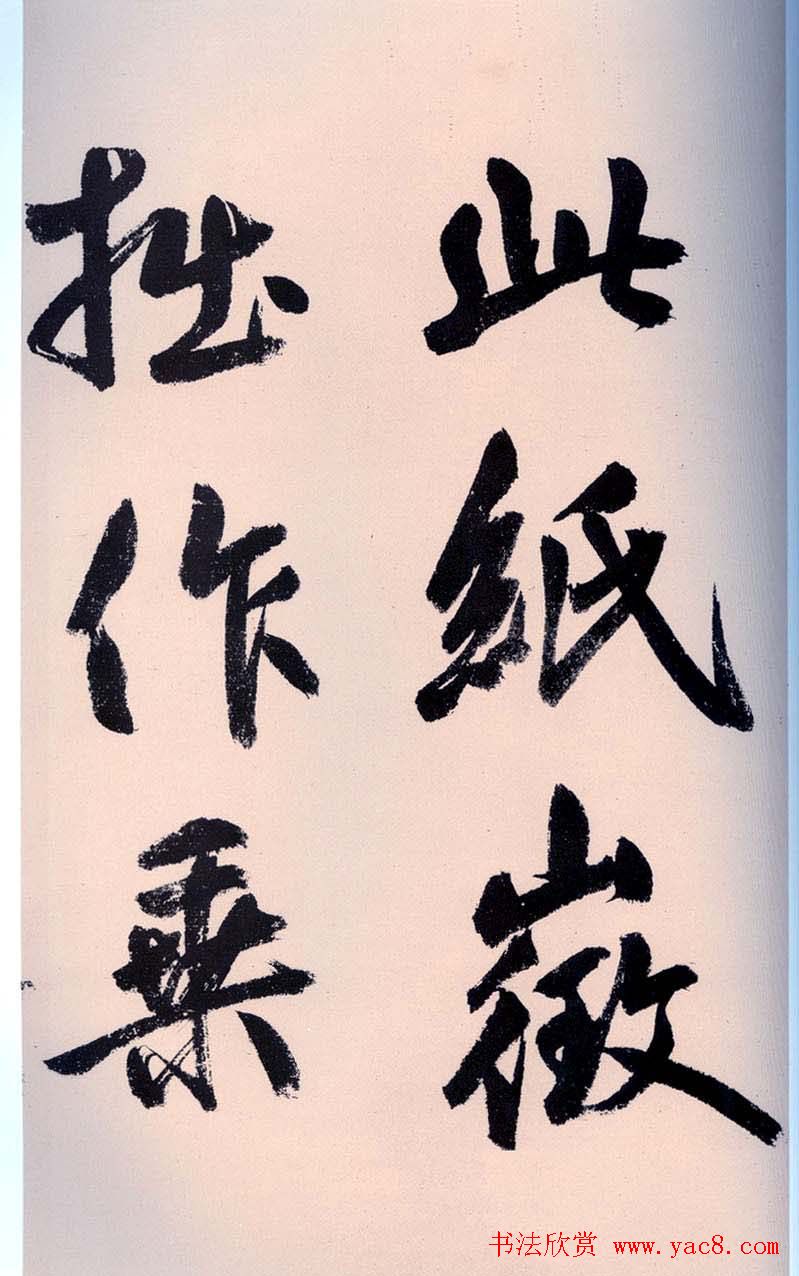 此紙徵
拙作乗
书法欣赏 www.yac8.com